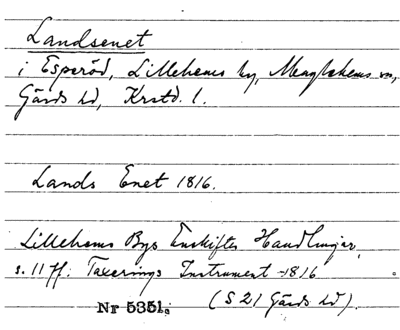 Landsenet
i Esperöd, Lillehems by, Maglehems sn,
Gärds hd, Krstd. l.
Lands Enet 1816.
Lillehems Bys Enskiftes Handlingar,
s. 11 ff: Taxerings Instrument -1816
Nr 5351. (S 21 Gärds hd).